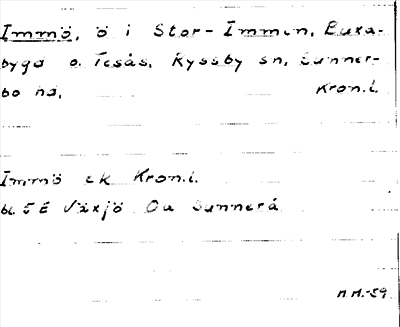 Immö, ö i Stor-Immen, Buxa-
bygd o. Tesås, Ryssby sn, Sunner-
bo hd, Kron.l.
Immö ek Kron.l.
bl. 5 E Växjö Oa Sunnerå
M.M.-59